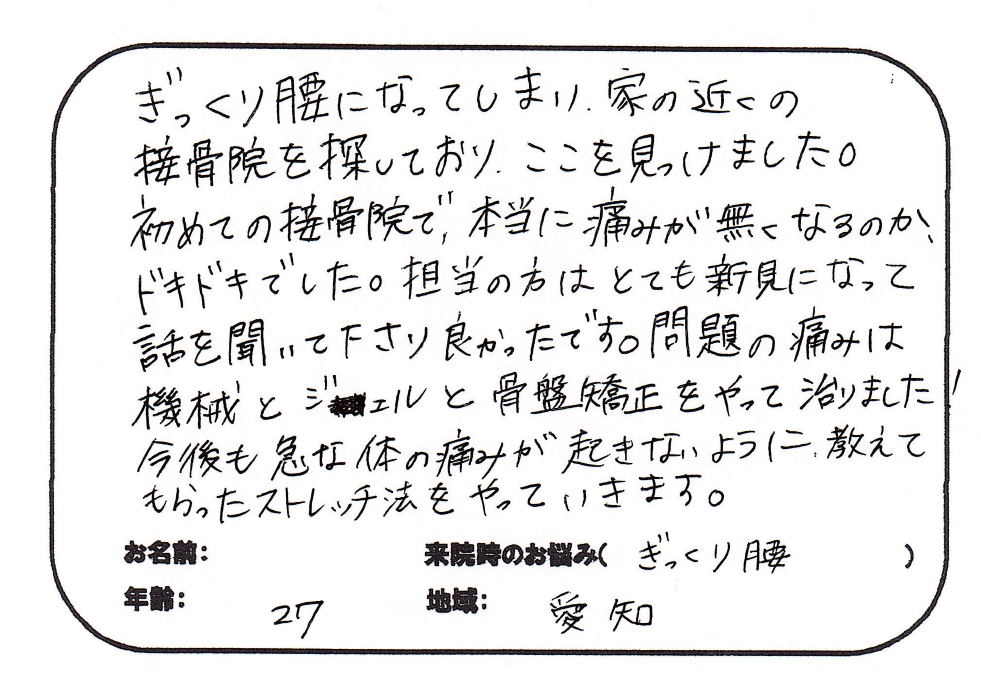 ぎっくり腰になってしまい、家の近くの
接骨院を探しており、ここを見っけました。
初めての接骨院で、本当に痛みが無くなるのか、
ドキドキでした。担当の方はとても新見になって
話を聞いて下さり良かったです。問題の痛みは
機械とジェルと骨盤矯正をやって治りました!
今後も急な体の痛みが起きないように、教えて
もらったストレッチ法をやっていきます。
お名前: 来院時のお悩み( ぎっくり腰 )
年齢: 27 地域: 愛知